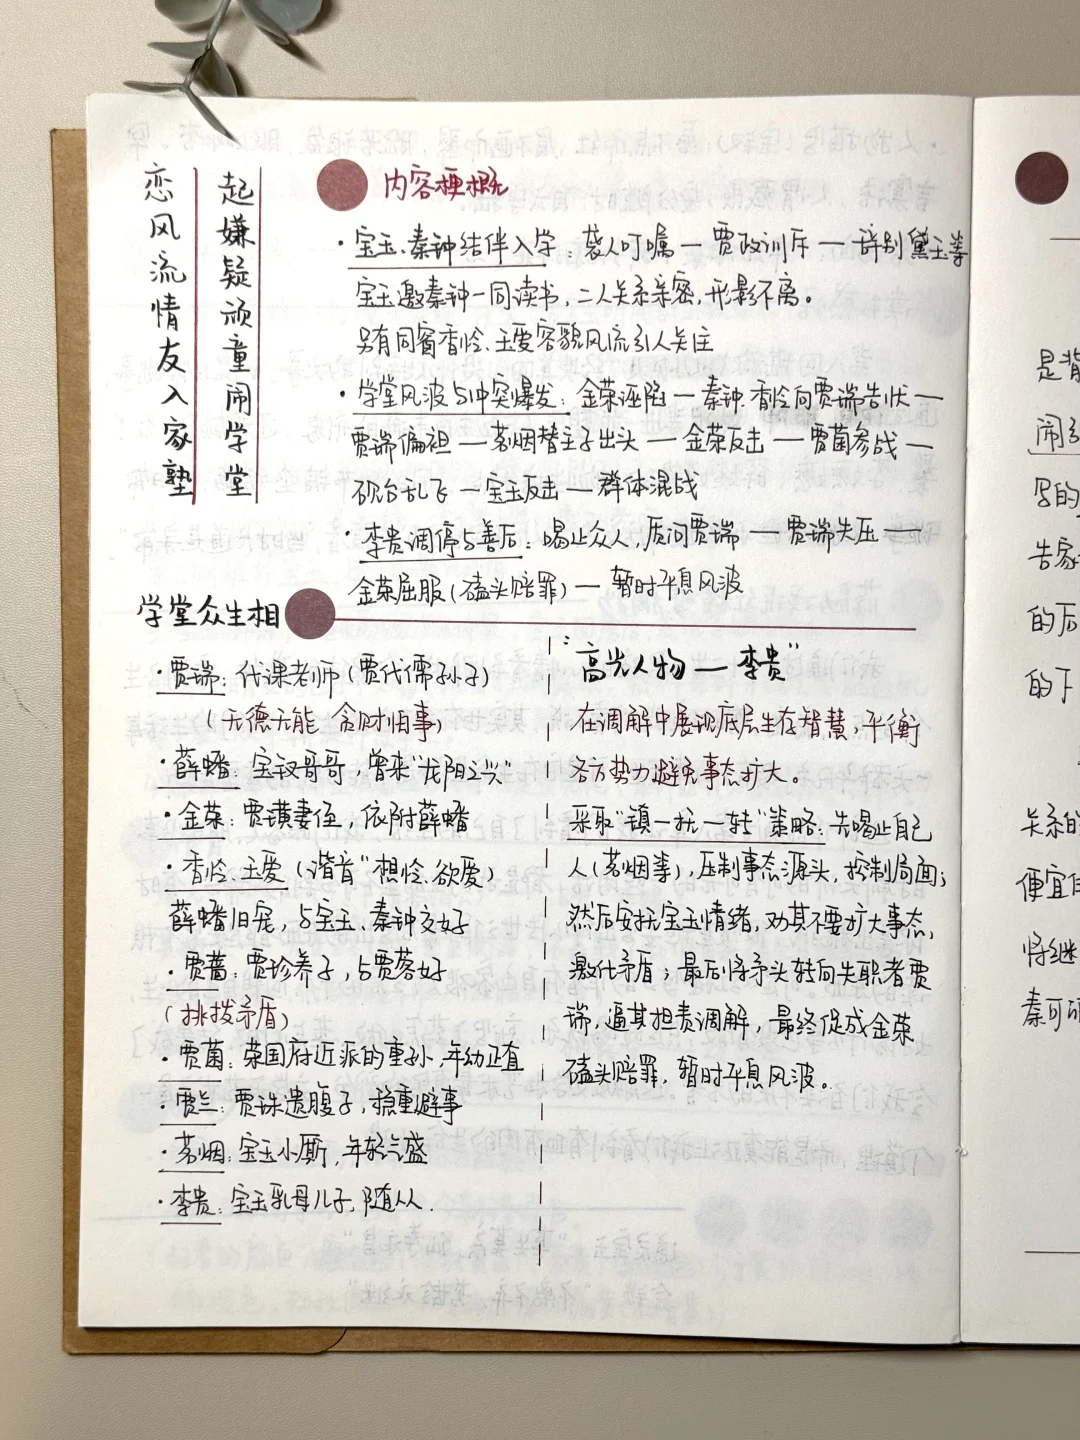 恋风流情友入家塾
起嫌疑顽童闹学堂
内容梗概
·宝玉、秦钟结伴入学：袭人叮嘱—贾政训斥—辞别黛玉等
宝玉邀秦钟一同读书，二人关系亲密，形影不离。
另有同窗香怜、玉爱容貌风流引人关注
·学堂风波与冲突爆发：金荣诬陷—秦钟香怜向贾瑞告状—
贾瑞偏袒—茗烟替主子出头—金荣反击—贾菌参战—
砚台乱飞—宝玉反击—群体混战
·李贵调停与善后：喝止众人，质问贾瑞—贾瑞失压—
金荣屈服(磕头赔罪)—暂时平息风波
学堂众生相
·贾瑞：代课老师(贾代儒孙子)
(无德无能 贪财怕事)
·薛蟠：宝钗哥哥，曾来"龙阳之兴"
·金荣：贾璜妻侄，依附薛蟠
·香怜、玉爱(谐音"相怜、欲爱)
薛蟠旧宠，与宝玉、秦钟交好
·贾蔷：贾珍养子，与贾蓉好
(挑拨矛盾)
·贾菌：荣国府近派的重孙，年幼正直
·贾兰：贾珠遗腹子，稳重避事
·茗烟：宝玉小厮，年轻气盛
·李贵：宝玉乳母儿子，随从人.
"高光人物—李贵"
在调解中展现底层生存智慧，平衡
各方势力避免事态扩大。
采取"镇—抚—转"策略：先喝止自己
人(茗烟等)，压制事态源头，控制局面；
然后安抚宝玉情绪，劝其不要扩大事态，
激化矛盾；最后将矛头转向失职者贾
瑞，逼其担责调解，最终促成金荣
磕头赔罪，暂时平息风波。
是背
闹
写的
告家
的后
的下
关系的
便宜
将继
秦可